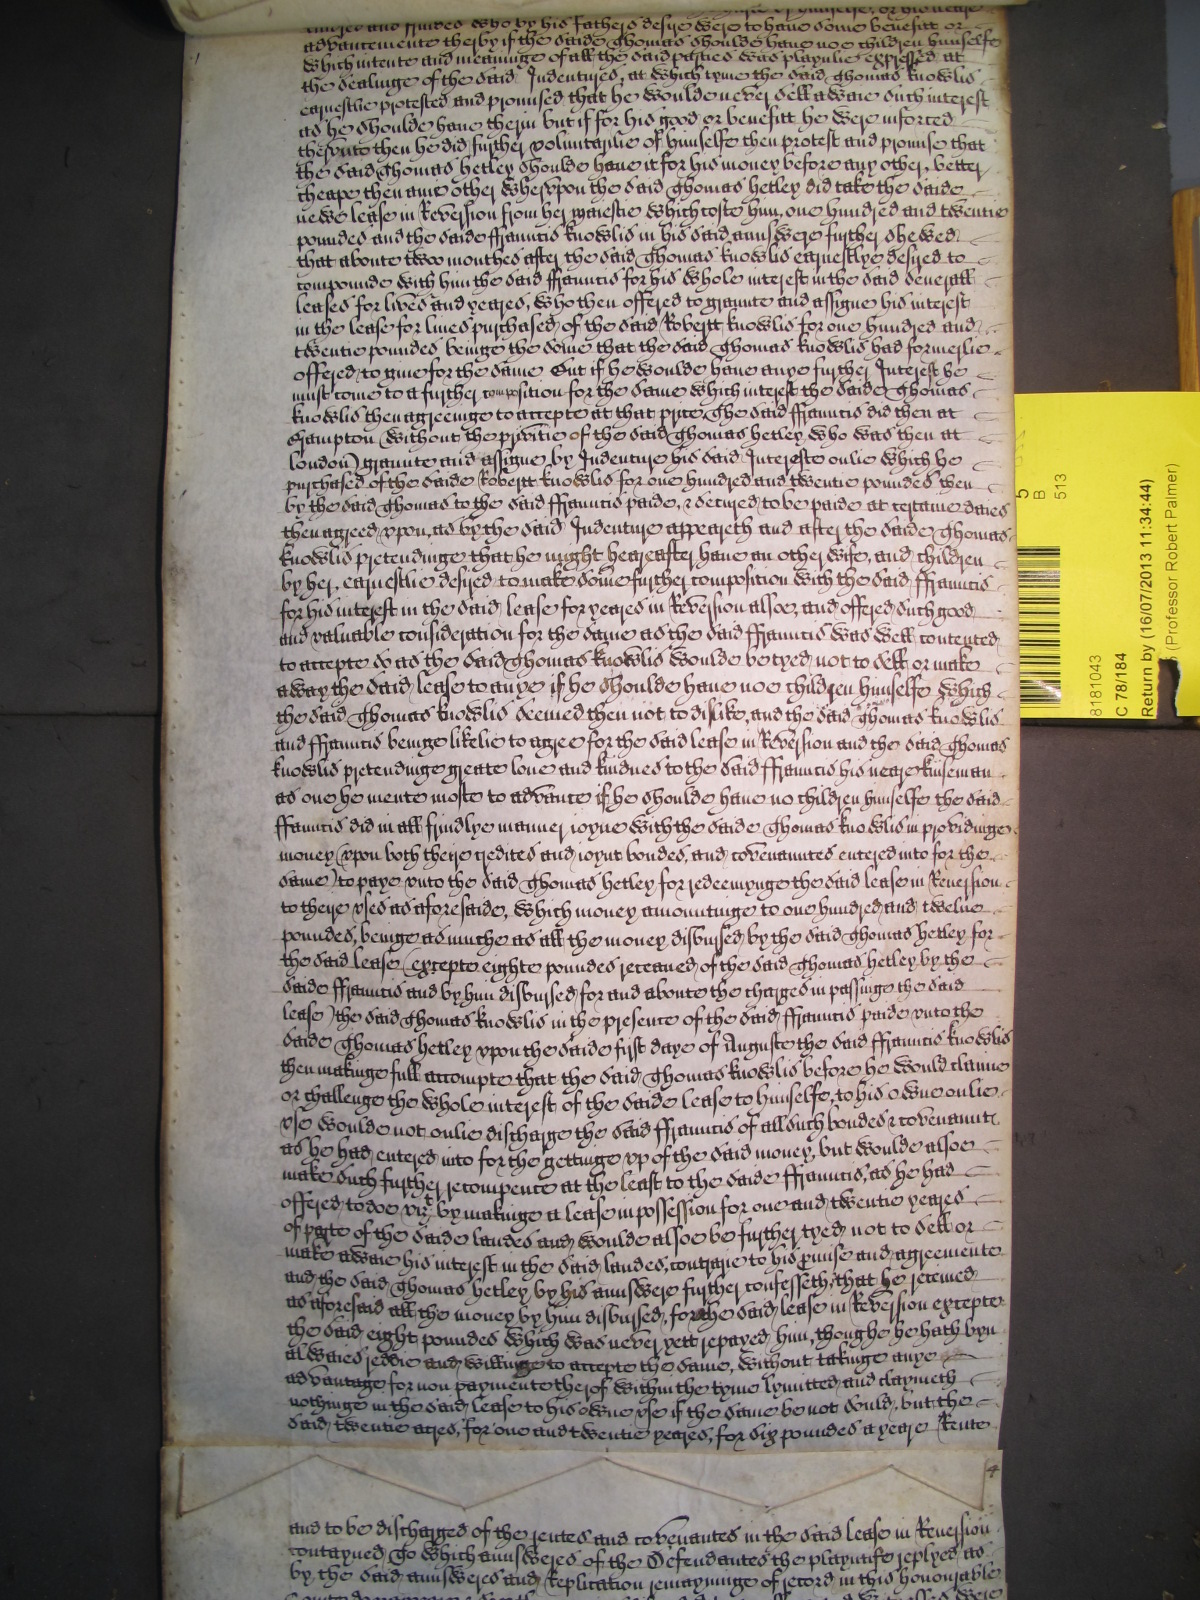 and ffrindes who by his fathers desyre were to have some benefitt or
advancemente therby if the saide Thomas shoulde have noe children himselfe
which intente and meaninge of all the said parties was playnlie expressed at
the sealinge of the said Indentures, at which tyme the said Thomas knowlis
earnestlie protested and promised that he woulde never sell awaie such interest
as he shoulde have therin but if for his good or benefitt he were inforced
therunto then he did further voluntarilie of himselfe then protest and promise that
the said Thomas hetley shoulde have it for his money before any other, better
cheape then anie other wherupon the said Thomas hetley did take the saide
newe lease in Reversion from her maiestie which coste him, one hundred and twentie
poundes and the saide ffrauncis knowlis in his said aunswere further shewed
that aboute twoo monthes after the said Thomas knowlis earnestlye desyred to
compounde with him the said ffrauncis for his whole interest in the said severall
leases for lives and yeares, who then offered to graunte and assigne his interest
in the lease for lives purchased of the said Robertt knowlis for one hundred and
twentie poundes beinge the some that the said Thomas knowlis had formerlie
offered to give for the same But if he woulde have anye further Interest he
must come to a further composition for the same which interest the saide Thomas
knowlis then agreeinge to accepte at that price The said ffrauncis did then at
Hampton (without the privitie of the said Thomas hetley who was then at
london) graunte and assigne by Indenture his said Intereste onlie which he
purchased of the saide Robertt knowlis for one hundred and twentie poundes then
by the said Thomas to the said ffrauncis paide, & secured to be paide at certaine daies
then agreed upon, as by the said Indenture appeareth and after the saide Thomas
knowlis pretendinge that he might heareafter have an other wife, and children
by her, earnestlie desyred to make some further composition with the said ffrauncis
for his interest in the said lease for yeares in Reversion alsoe, and offered such good
and valuable consideration for the same as the said ffrauncis was well contented
to accepte so as the said Thomas knowlis woulde be tyed not to sell or make
away the said lease to anye if he shoulde have noe children himselfe which
the said Thomas knowlis seemed then not to dislike, and the said Thomas knowlis
and ffrauncis beinge likelie to agree for the said lease in Reversion and the said Thomas
knowlis pretendinge greate love and kindnes to the said ffrauncis his neare kinseman
as one he mente moste to advance if he shoulde have no children himselfe the said
ffrauncis did in all frindlye manner ioyne with the saide Thomas knowlis in providinge
money (upon both theire credites and ioynt bondes, and covenauntes entered into for the
same) to paye unto the said Thomas hetley for redeemynge the said lease in Reversion
to theire uses as aforesaide, which money amountinge to one hundred and twelve
poundes, beinge as muche as all the money disbursed by the said Thomas hetley for
the said lease (excepte eighte poundes receaved of the said Thomas hetley by the
saide ffrauncis and by him disbursed for and aboute the charges in passinge the said
lease) the said Thomas knowlis in the presence of the said ffrauncis paide unto the
saide Thomas hetley upon the saide first daye of Auguste the said ffrauncis knowlis
then makinge full accompte that the said Thomas knowlis before he would claime
or challenge the whole interest of the saide lease to himselfe, to his owne onlie
use woulde not onlie discharge the said ffrauncis of all such bondes & covenauntes
as he had entered into for the gettinge up of the said money, but woulde alsoe
make such further recompence at the least to the saide ffrauncis, as he had
offered to doe vizt by makinge a lease in possession for one and twentie yeares
of parte of the saide landes and woulde alsoe be further tyed not to sell or
make awaie his interest in the said landes, contrarie to his promise and agreemente
and the said Thomas hetley by his aunswere further confesseth, that he receaved
as aforesaid all the money by him disbursed, for the said lease in Reversion excepte
the said eight poundes which was never yett repayed him, thoughe he hath byn
alwaies reddie and willinge to accepte the same, without takinge anye
advantage for non paymente therof within the tyme lymitted and claymeth
nothinge in the said lease to his owne use if the same be not sould, but the
said twentie acres, for one and twentie yeares, for six poundes a yeare Rente
4
and to be discharged of the rentes and covenantes in the said lease in Reversion
contayned, To which aunsweres of the Defendantes the playntife replyed as
by the said aunsweres and Replication remayninge of record in this honorable
5
B
513
8181043
C 78/184
Return by (16/07/2013 11:34:44)
(Professor Robert Palmer)